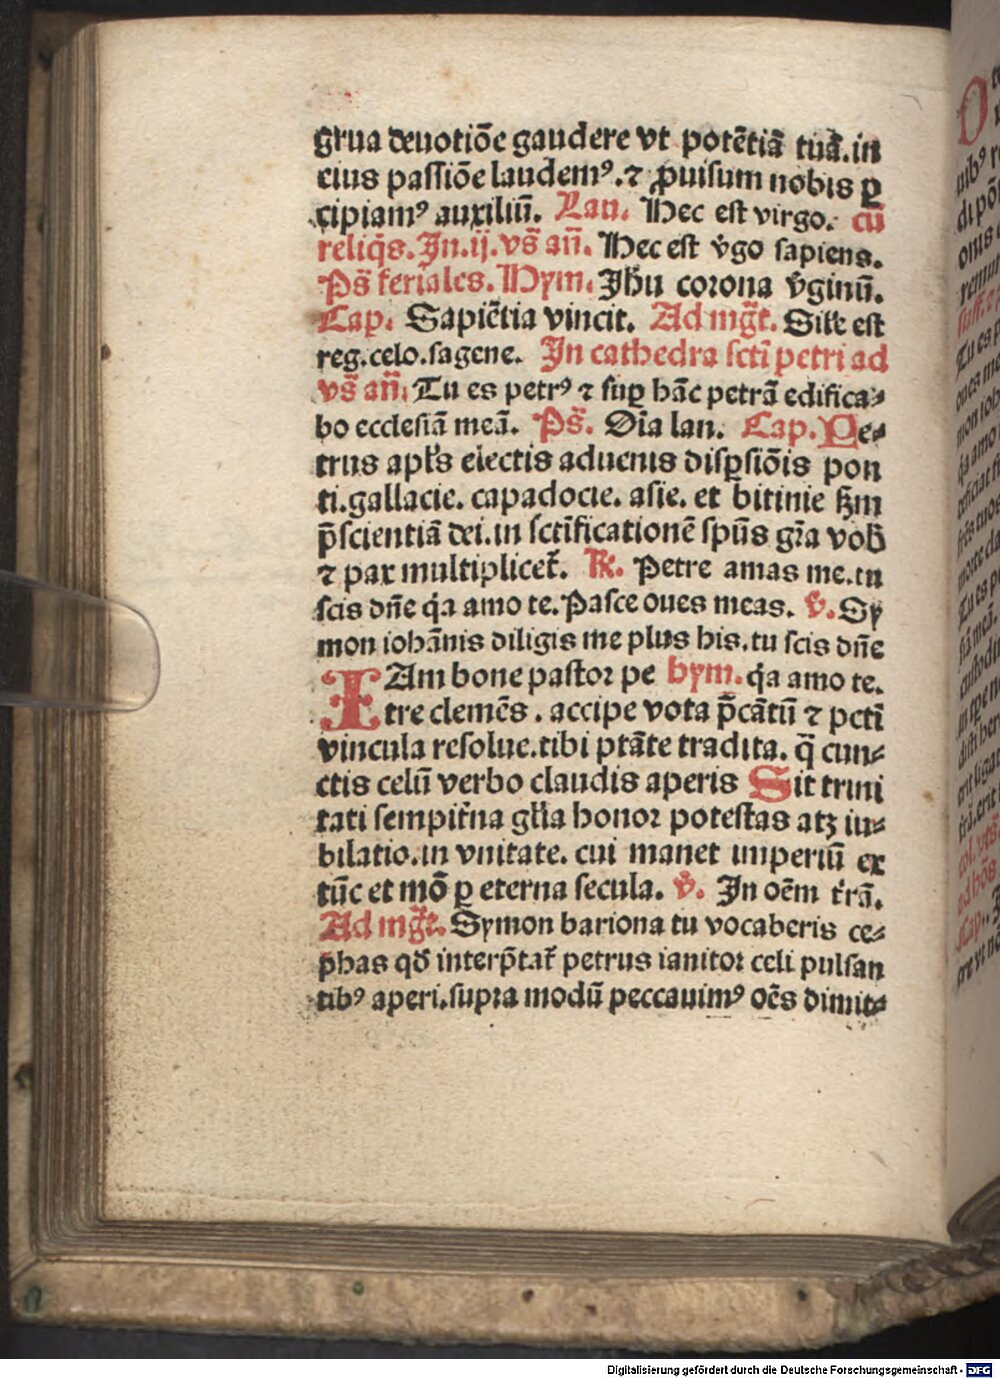 grua deuotiōe gaudere vt potētiā tuā.in
eius passiōe laudemꝰ.⁊ ꝓuisum nobis ꝑ
cipiamꝰ auxiliū. Lau. Hec est virgo. cū
reliq̄s. In.ij. vs̄ añ. Hec est v̄go sapiens.
Ps̄ feriales. Hym. Jhū corona v̄ginū.
Cap. Sapiētia vincit. Ad mg̃t. Sile est
reg.celo.sagene. In cathedra scti petri ad
vs̄ añ. Tu es petrꝰ ⁊ suꝑ hāc petrā edifica⸗
bo ecclesiā meā. Ps̄. Oīa lau. Cap. Pe⸗
trus apl's electis aduenis disꝑsiōis pon
ti.gallacie. capadocie. asie. et bitinie ẜm
p̄scientiā dei.in sctīficationē spūs gr̄a vob̄
⁊ pax multiplicet̄. ℟. Petre amas me.tu
scis dn̄e q̇a amo te. Pasce oues meas. ℣. Sy
mon iohānis diligis me plus his.tu scis dn̄e
IAm bone pastor pe hym. q̇a amo te.
tre clemēs . accipe vota p̄cātū ⁊ pctī
vincula resolue.tibi ptāte tradita. q̄ cun⸗
ctis celū verbo claudis aperis Sit trini
tati sempit̄na gl'ia honor potestas atꝫ iu⸗
bilatio.in vnitate. cui manet imperiū ex
tūc et mō ꝑ eterna secula. ℣. In oēm t̄rā.
Ad mg̃t. Symon bariona tu vocaberis ce⸗
phas qđ interp̄tat̄ petrus ianitor celi pulsan
tibꝰ aperi.supra modū peccauimꝰ oēs dimit⸗
Digitalisierung gefördert durch die Deutsche Forschungsgemeinschaft - DFG